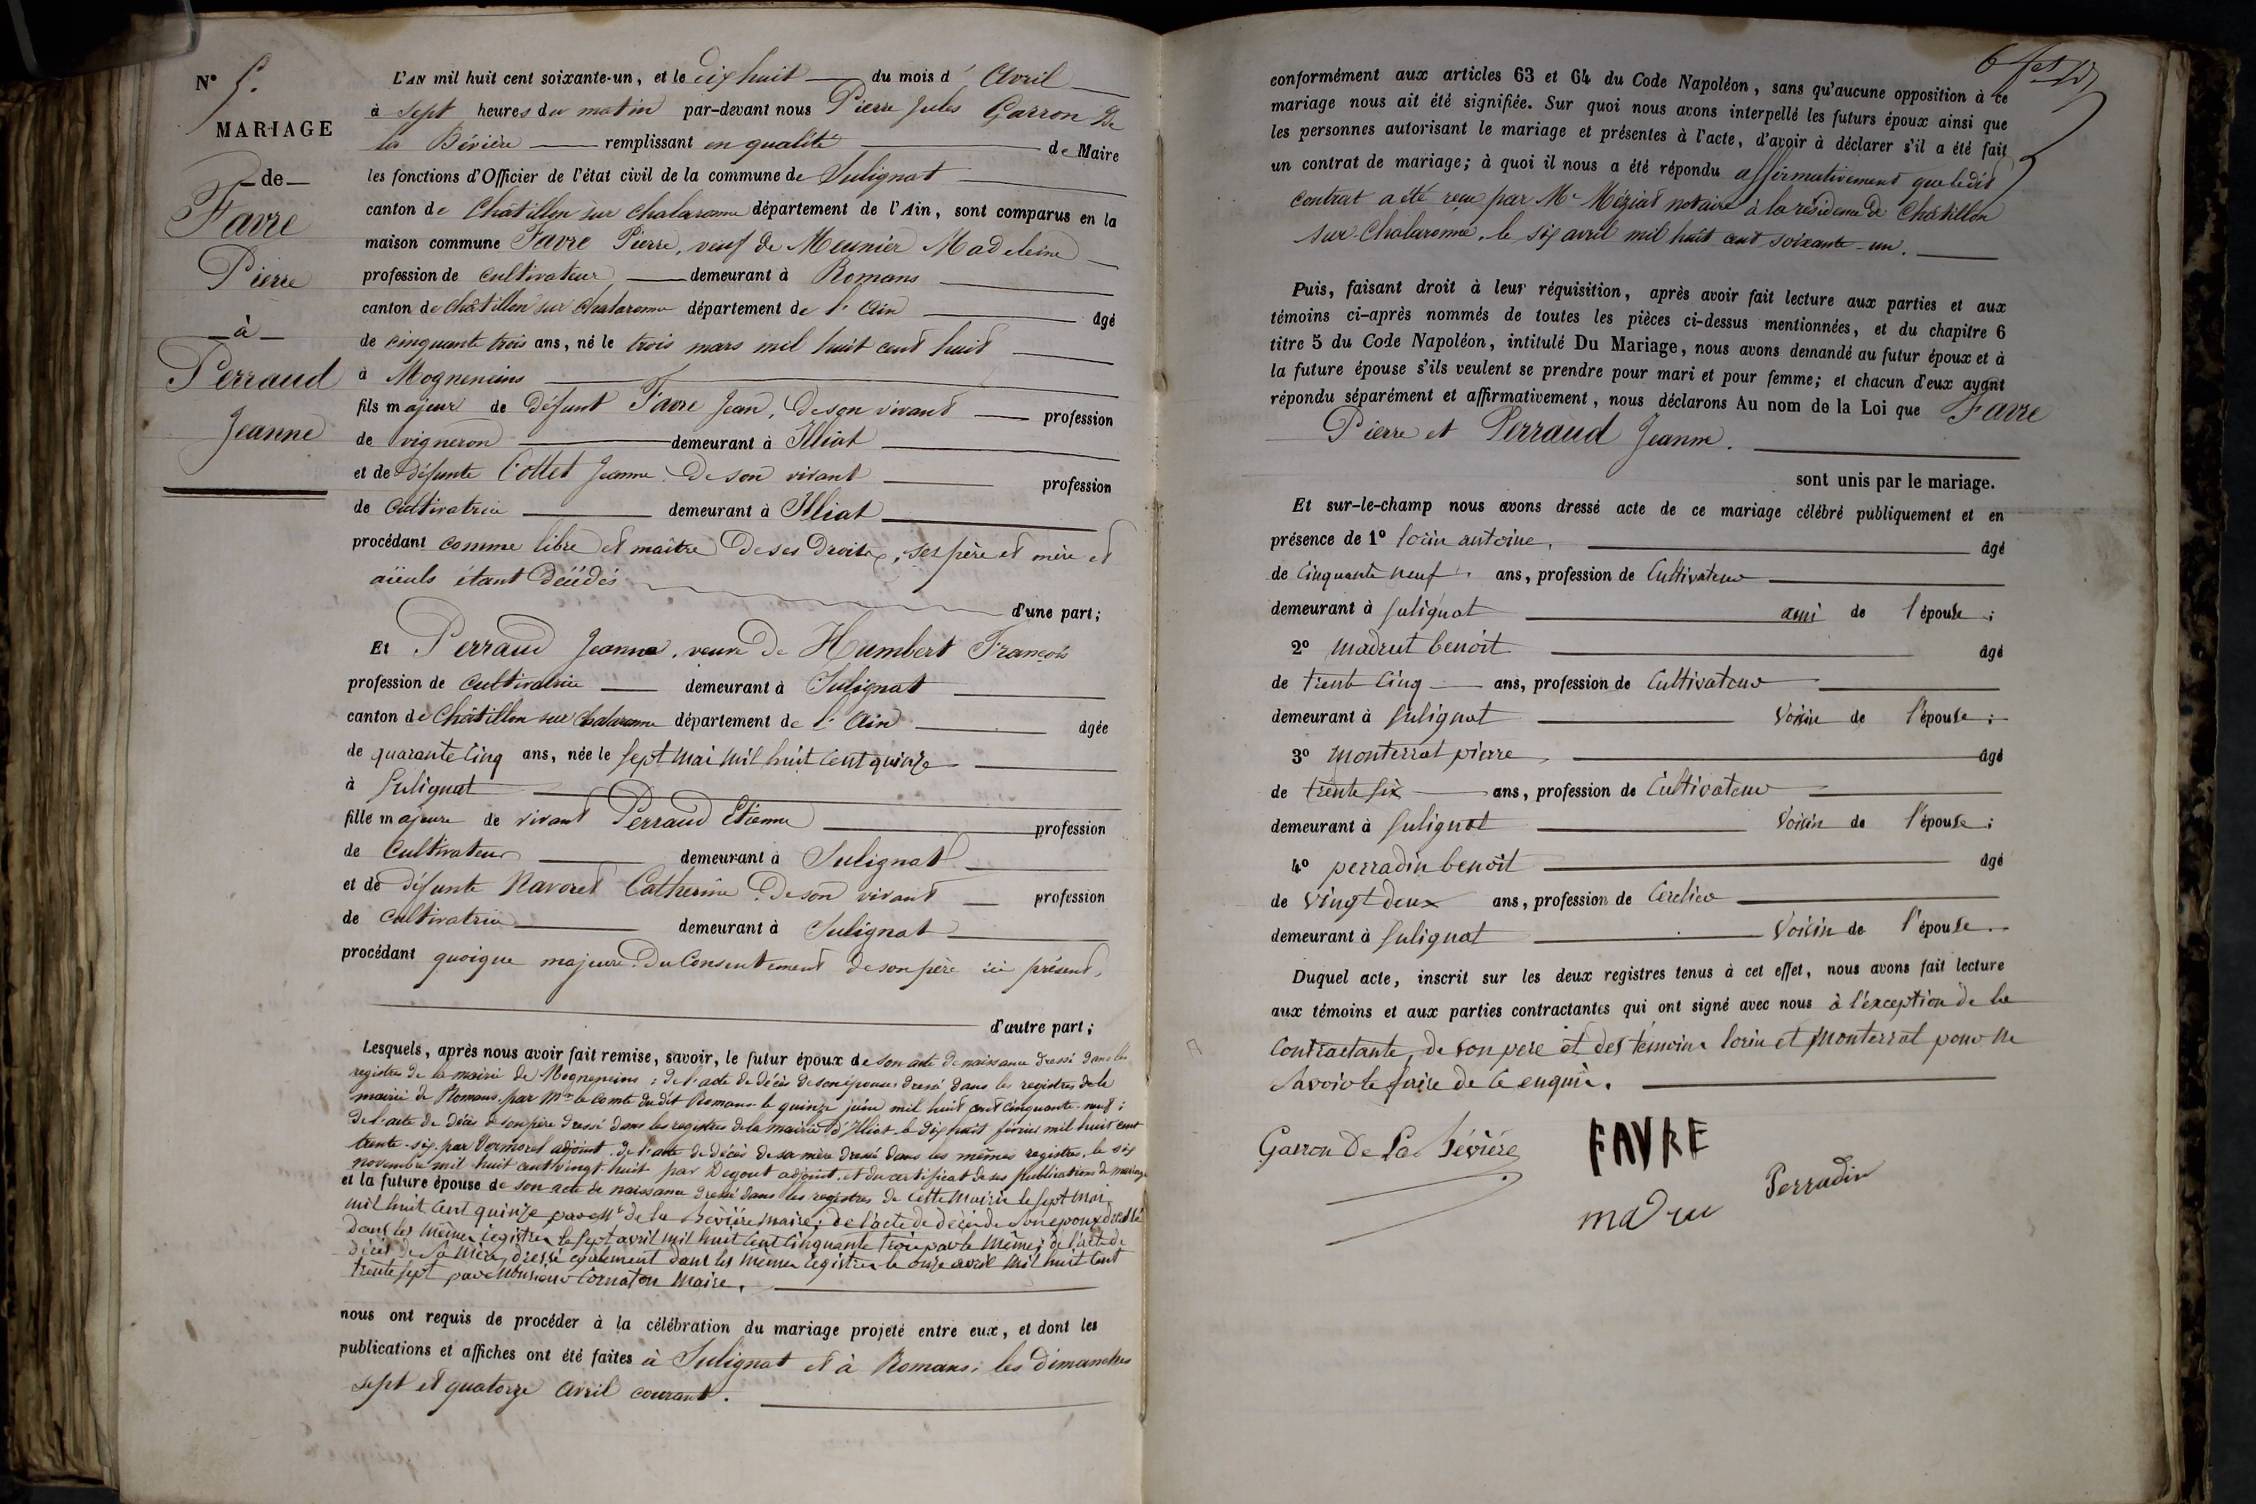 N° 5.
MARIAGE
de
Favre
Pierre
à
Perraud
Jeanne
L'AN mil huit cent soixante-un, et le dix huit du mois d' Avril
à sept heures du matin par-devant nous Pierre Jules Garron De
la Bévière remplissant en qualité de Maire
les fonctions d'Officier de l'état civil de la commune de Sulignat
canton de Châtillon sur Chalaronne département de l'Ain, sont comparus en la
maison commune Favre Pierre, veuf de Meunier Madeleine
profession de cultivateur demeurant à Romans
canton de Châtillon sur Chalaronne département de l'Ain âgé
de cinquante trois ans, né le trois mars mil huit cent huit
à Mogneneins
fils majeur de défunt Favre Jean, de son vivant profession
de vigneron demeurant à Illiat
et de défunte Collet Jeanne de son vivant profession
de cultivatrice demeurant à Illiat
procédant comme libre et maître de ses droits, ses père et mère et
aïeuls étant décédés
d'une part;
Et Perraud Jeanne, veuve de Humbert François
profession de cultivatrice demeurant à Sulignat
canton de Châtillon sur Chalaronne département de l'Ain âgée
de quarante cinq ans, née le sept mai mil huit cent quinze
à Sulignat
fille majeure de vivant Perraud Etienne profession
de cultivateur demeurant à Sulignat
et de défunte Navoret Catherine de son vivant profession
de cultivatrice demeurant à Sulignat
procédant quoique majeure du consentement de son père ici présent,
d'autre part;
Lesquels, après nous avoir fait remise, savoir, le futur époux de son acte de naissance dressé dans les
registres de la mairie de Mogneneins; de l'acte de décès de son épouse dressé dans les registres de la
mairie de Romans, par Mr le Comte du dit Romans le quinze juin mil huit cent cinquante-neuf;
de l'acte de décès de son père dressé dans les registres de la mairie d'Illiat le dix huit février mil huit cent
trente-six par Vermorel adjoint, de l'acte de décès de sa mère dressé dans les mêmes registres, le six
novembre mil huit cent vingt huit par Degout adjoint, et du certificat de ses publications de mariage
et la future épouse de son acte de naissance dressé dans les registres de cette Mairie le sept Mai
mil huit cent quinze par Mr de la Bévière maire; de l'acte de décès de son époux dressé
dans les mêmes registres le sept avril mil huit cent cinquante trois par le même; de l'acte de
décès de sa mère, dressé également dans les mêmes registres le onze avril mil huit cent
trente sept par Monsieur Cornaton Maire.
nous ont requis de procéder à la célébration du mariage projeté entre eux, et dont les
publications et affiches ont été faites à Sulignat et à Romans; les dimanches
sept et quatorze avril courant.
conformément aux articles 63 et 64 du Code Napoléon, sans qu'aucune opposition à ce
mariage nous ait été signifiée. Sur quoi nous avons interpellé les futurs époux ainsi que
les personnes autorisant le mariage et présentes à l'acte, d'avoir à déclarer s'il a été fait
un contrat de mariage; à quoi il nous a été répondu affirmativement que ledit
contrat a été reçu par Me Méziat notaire à la résidence de Châtillon
sur Chalaronne, le six avril mil huit cent soixante-un.
Puis, faisant droit à leur réquisition, après avoir fait lecture aux parties et aux
témoins ci-après nommés de toutes les pièces ci-dessus mentionnées, et du chapitre 6
titre 5 du Code Napoléon, intitulé Du Mariage, nous avons demandé au futur époux et à
la future épouse s'ils veulent se prendre pour mari et pour femme; et chacun d'eux ayant
répondu séparément et affirmativement, nous déclarons Au nom de la Loi que Favre
Pierre et Perraud Jeanne.
sont unis par le mariage.
Et sur-le-champ nous avons dressé acte de ce mariage célébré publiquement et en
présence de 1° lorin antoine, âgé
de cinquante neuf ans, profession de Cultivateur
demeurant à Sulignat ami de l'épouse;
2° madrut benoit âgé
de trente cinq ans, profession de Cultivateur
demeurant à Sulignat voisin de l'épouse;
3° monterrat pierre âgé
de trente six ans, profession de Cultivateur
demeurant à Sulignat voisin de l'épouse;
4° perradin benoit âgé
de vingt deux ans, profession de Cerclier
demeurant à Sulignat voisin de l'épouse.
Duquel acte, inscrit sur les deux registres tenus à cet effet, nous avons fait lecture
aux témoins et aux parties contractantes qui ont signé avec nous à l'exception de la
contractante, de son père et des témoins lorin et Monterrat pour ne
savoir le faire de ce enquis.
Garron De La Bévière
FAVRE
Perradin